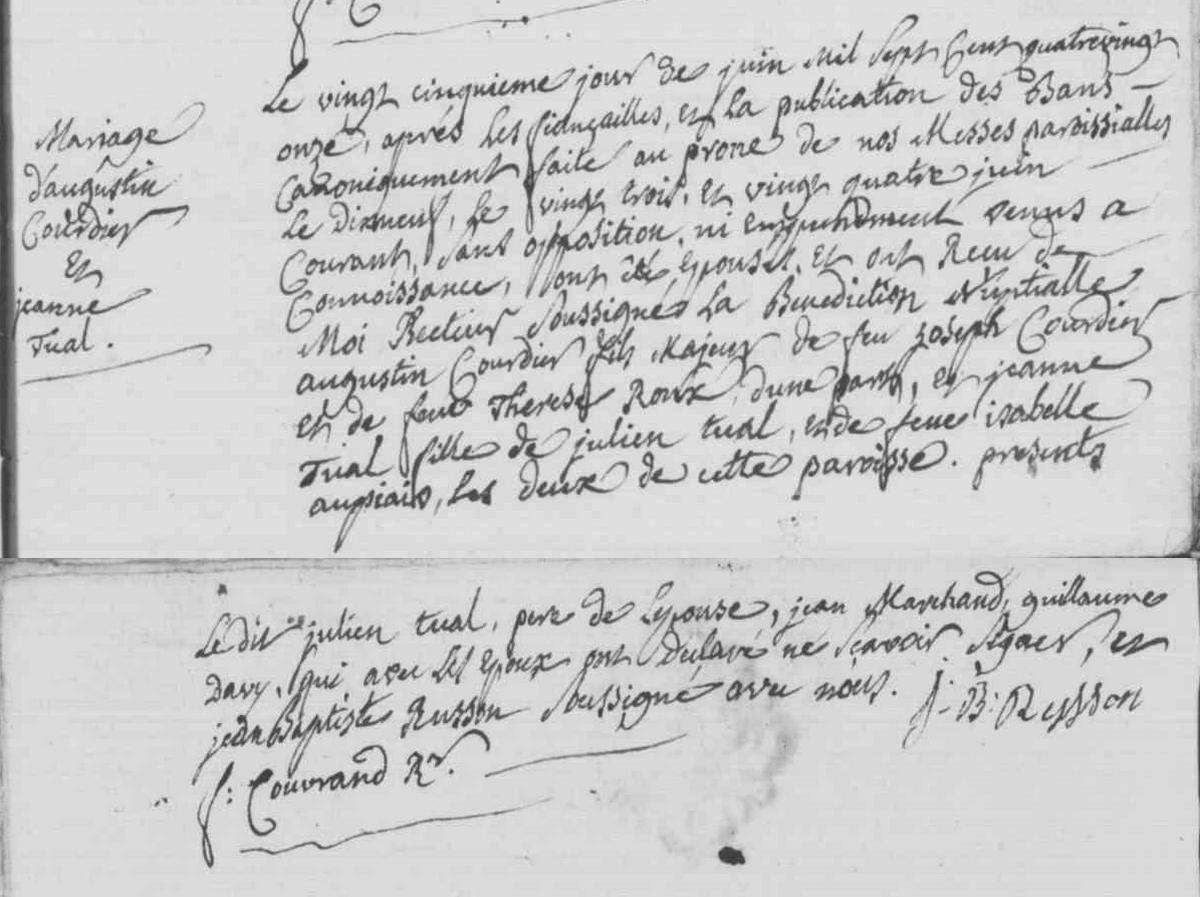 Mariage
d'augustin
Courdier
Et
jeanne
Tual.
Le vingt cinquieme jour de juin Mil Sept Cent quatrevingt
onze, aprés Les fiançailles, et La publication des Bans
Canoniquement faite au prone de nos Messes paroissialles
Le Dixneuf, Le vingt trois, et vingt quatre juin
Courant, sans opposition, ni Empechement venus a
Connoissance, sont été Epousés, Et ont Recu de
Moi Recteur soussigné La Benediction Nuptialle
augustin Courdier fils Majeur de feu Joseph Courdier
et de feue Therese Roux, dune part, et jeanne
Tual fille de julien tual, et de feue isabelle
Les deux de cette paroisse. presents
Le dit julien tual, pere de Lepouse, jean Marchand, guillaume
Davy, qui avec Les Epoux ont Declaré ne scavoir signer, et
jean Baptiste Russon soussigné avec nous. J. B: Russon
f: Couvrand Rr.